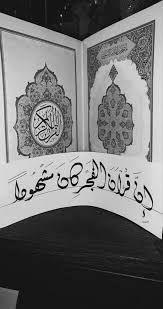 إنّ قرآن الفجر كان مشهوداً